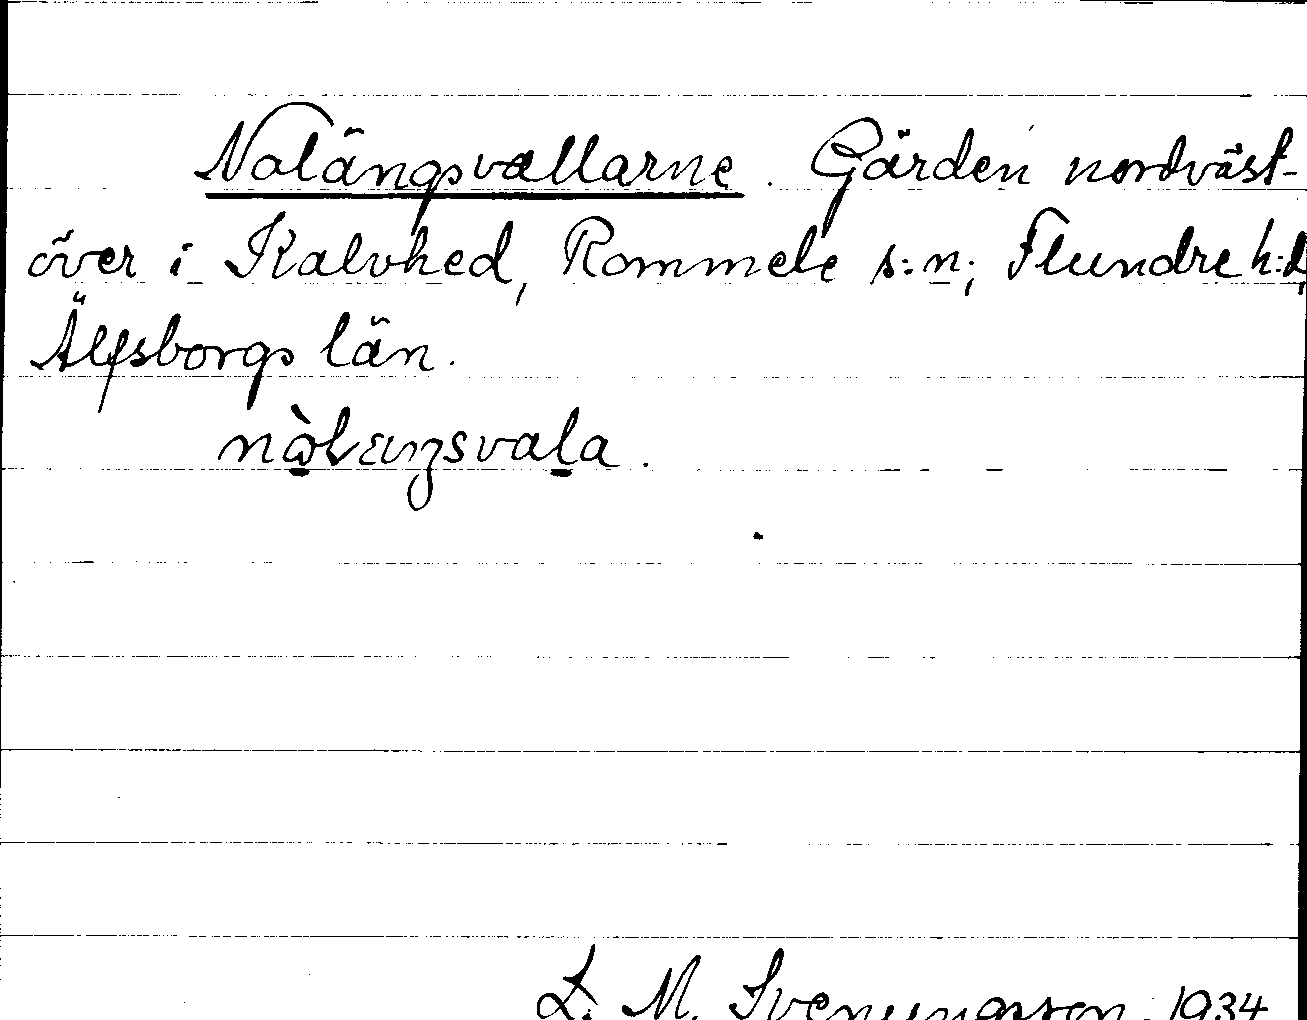 Nolängsvallarne. Gärden nordväst-
över i Kalvhed, Rommele s:n, Flundre h:d,
Älfsborgs län.
L. M. Svenungsson. 1934